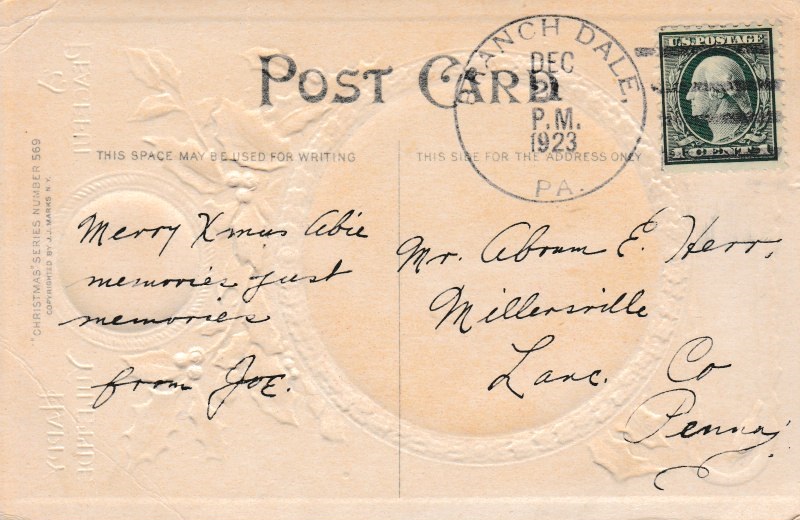 POST CARD
BRANCH DALE,
DEC
2
P.M.
1923
PA.
U.S. POSTAGE
1 CENT 1
THIS SPACE MAY BE USED FOR WRITING
THIS SIDE FOR THE ADDRESS ONLY
"CHRISTMAS" SERIES NUMBER 569
COPYRIGHTED BY J.J. MARKS N.Y.
Merry Xmas Abie
memories just
memories
from Joe.
Mr. Abram E. Herr,
Millersville
Lanc. Co
Penna,